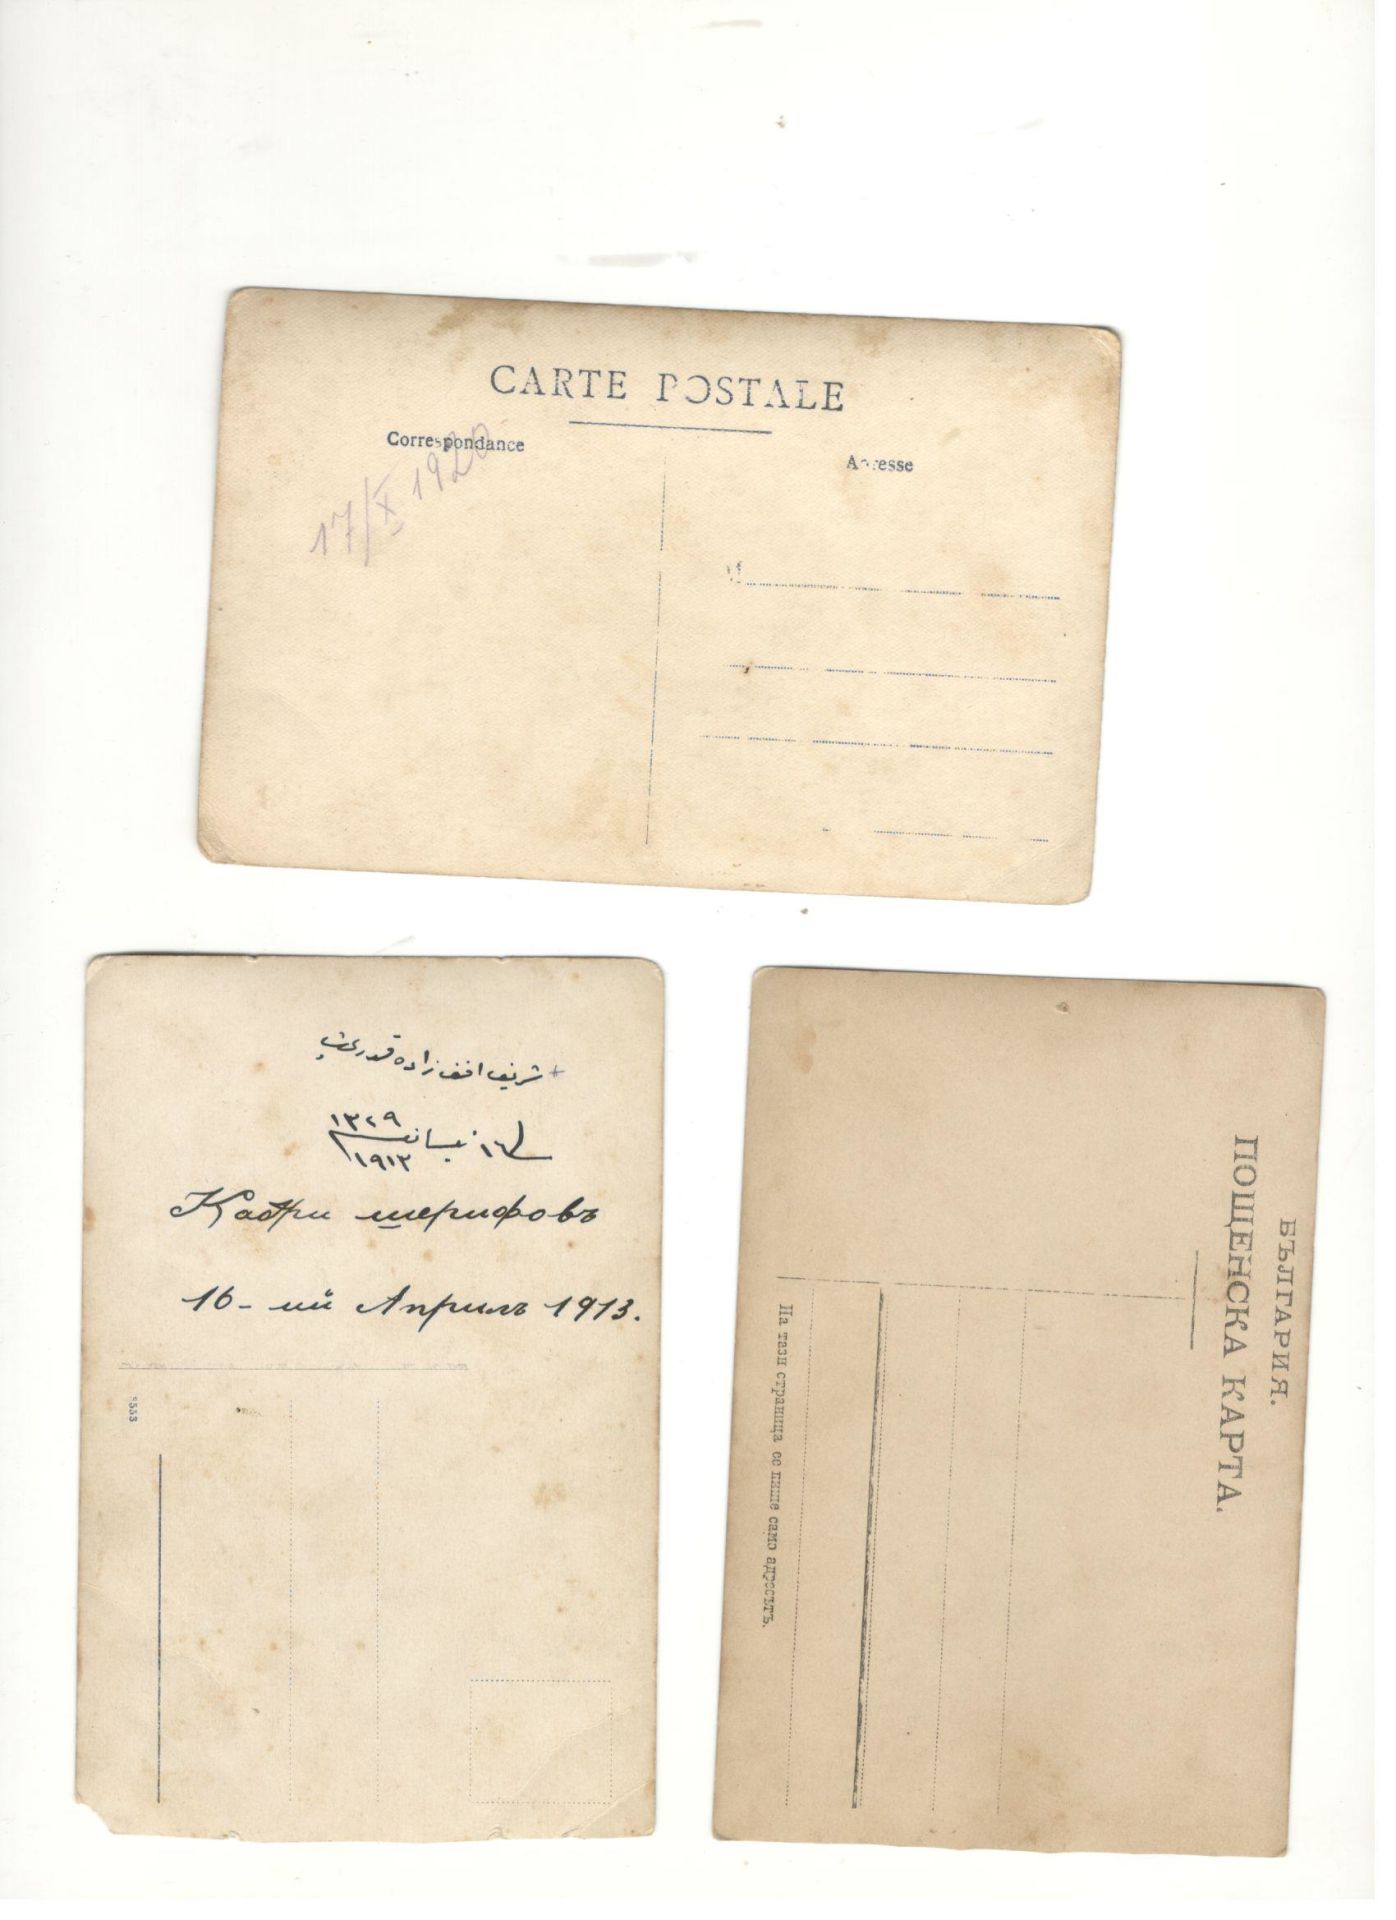 CARTE POSTALE
Correspondance
Adresse
17/X 1920
شريف افندى زاده قدرى
١٦ نيسان ١٣٢٩
١٩١٣
Кадри шерифовъ
16-ий Априлъ 1913.
БЪЛГАРИЯ.
ПОЩЕНСКА КАРТА.
На тази страница се пише само адресътъ.